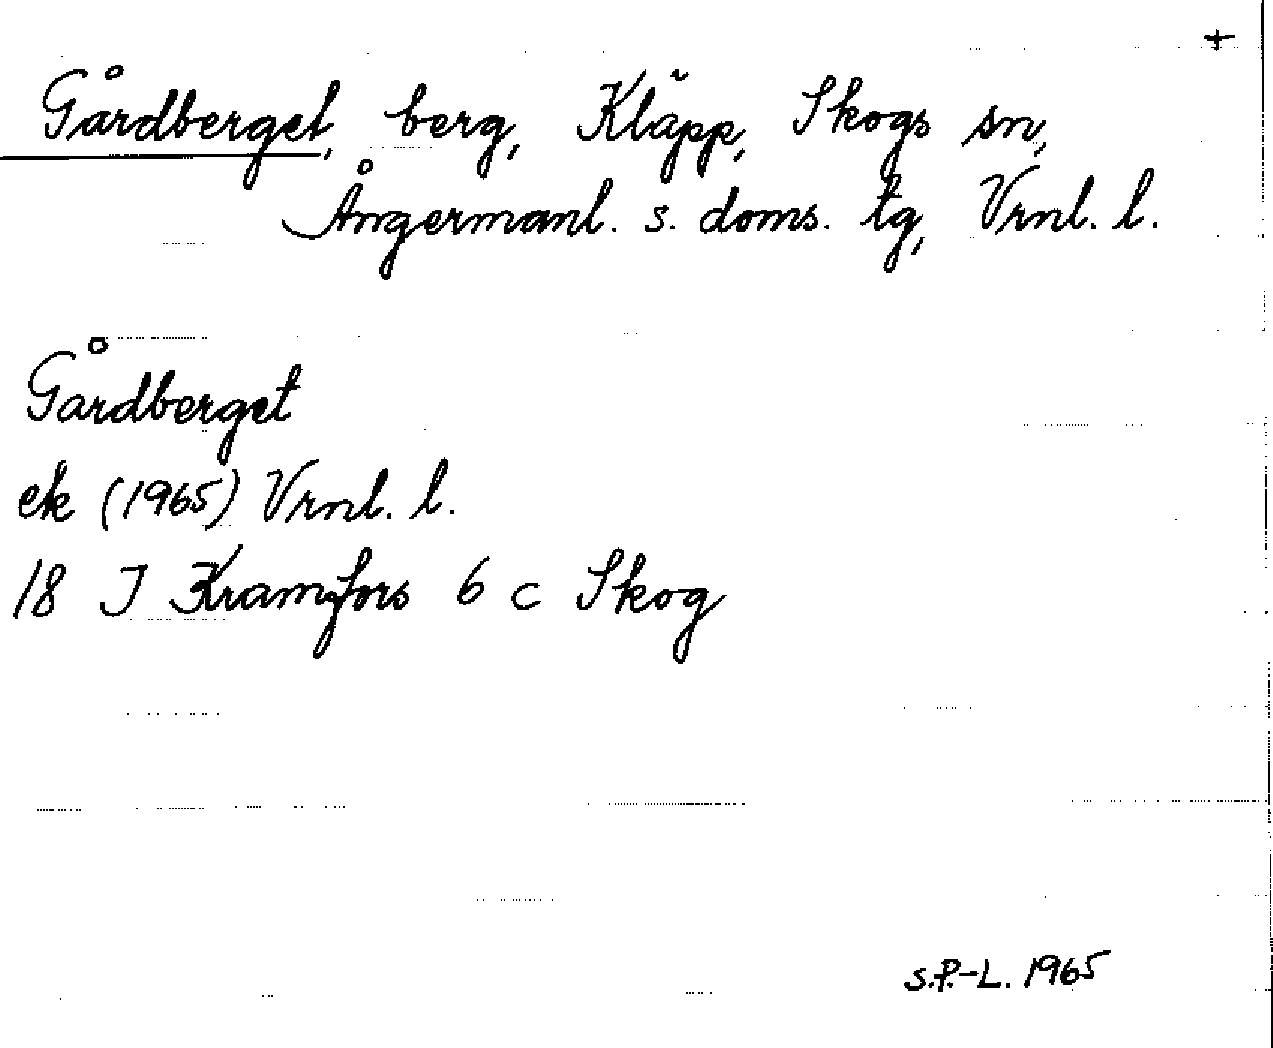 +
Gårdberget, berg, Kläpp, Skogs sn,
Ångermanl. s. doms. tg, Vrnl. l.
Gårdberget
ek (1965) Vrnl. l.
18 I Kramfors 6 c Skog
S.P.-L. 1965